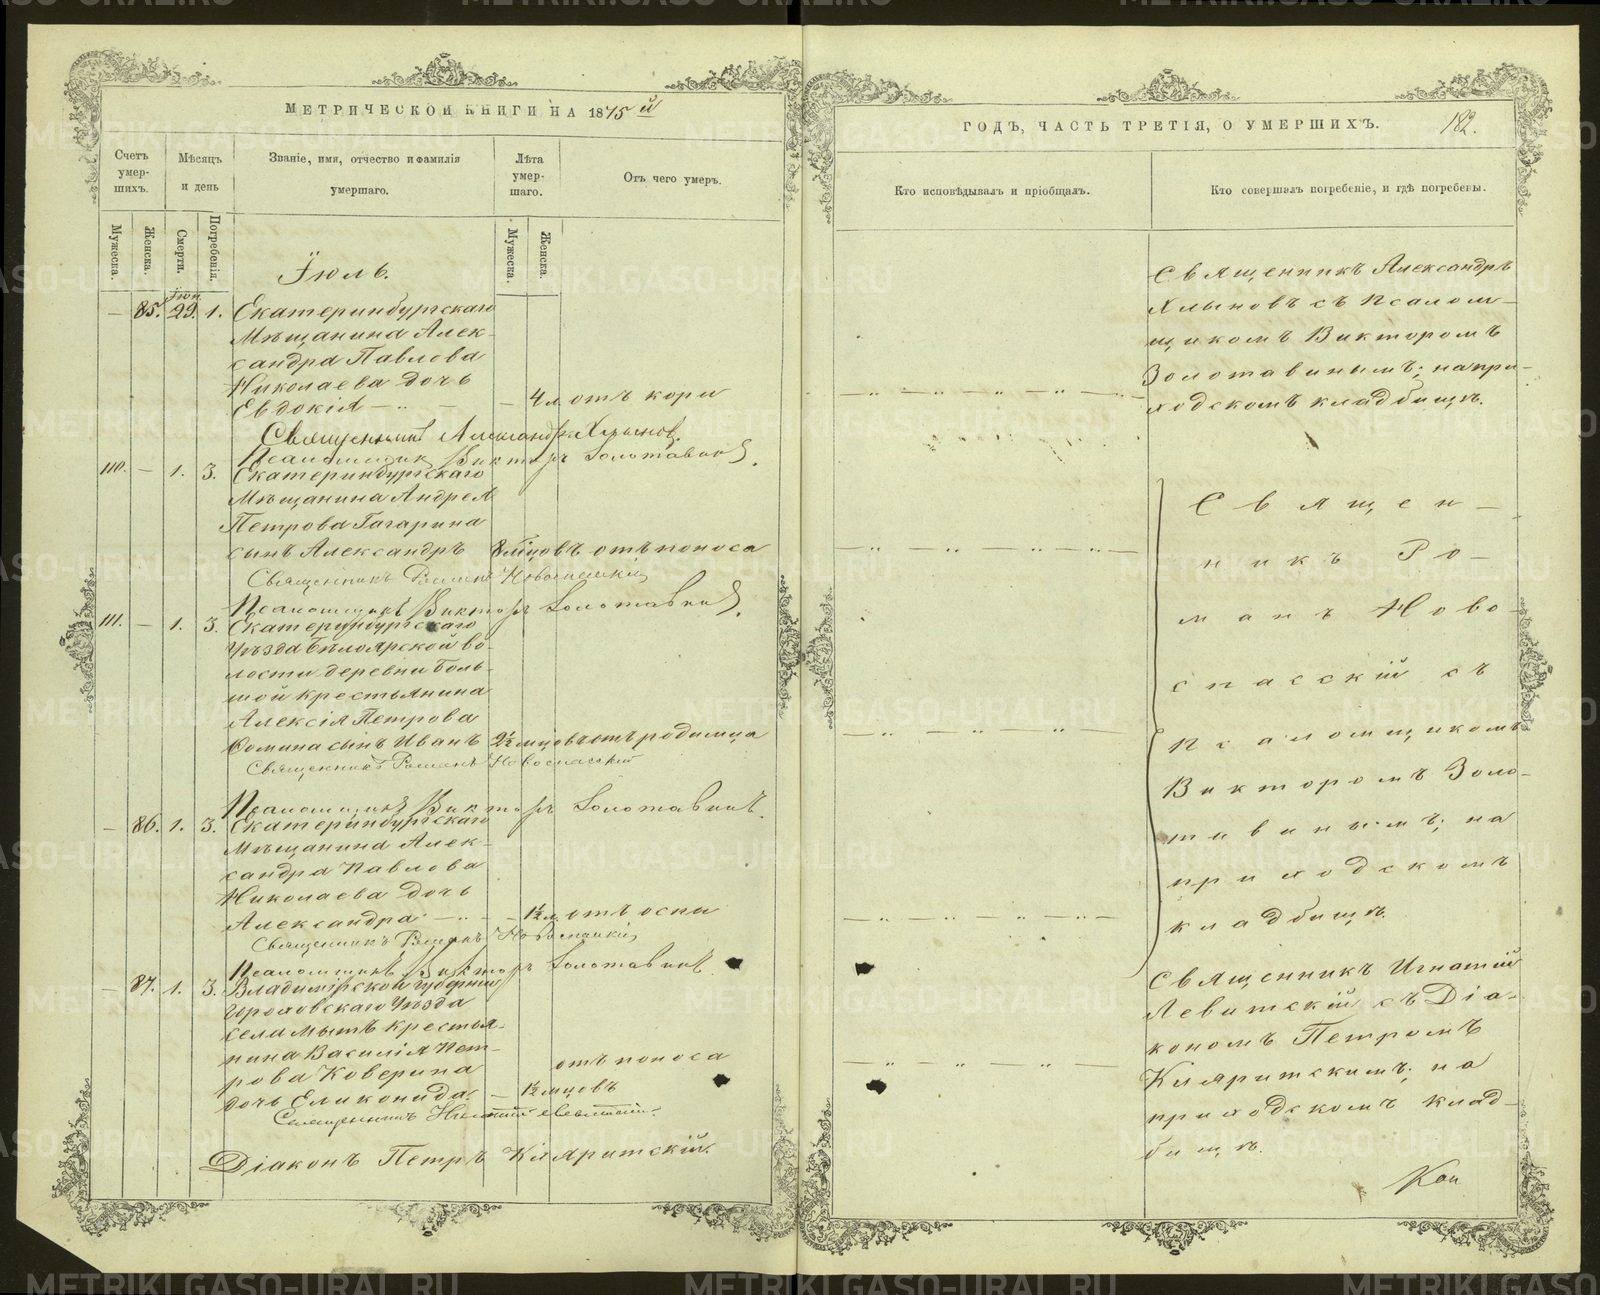 МЕТРИЧЕСКОЙ КНИГИ НА 1875й
Счетъ умер-шихъ.
Мѣсяцъ и день
Званіе, имя, отчество и фамилія умершаго.
Лѣта умер-шаго.
Отъ чего умеръ.
Мужеска.
Женска.
Смерти.
Погребенія.
Мужеска.
Женска.
Іюль.
Іюн.
— 85. 29. 1. Екатеринбургскаго
Мѣщанина Алек-
сандра Павлова
Николаева дочь
Евдокія — 4 л. отъ кори
Священникъ Александръ Хлыновъ.
Псаломщикъ Викторъ Золотавинъ.
110. — 1. 3. Екатеринбургскаго
Мѣщанина Андрея
Петрова Гагарина
сынъ Александръ 8 мѣсцовъ отъ поноса
Священникъ Романъ Новоспасскій
Псаломщикъ Викторъ Золотавинъ.
111. — 1. 3. Екатеринбургскаго
Уѣзда Бѣлоярской во-
лости деревни Боль-
шой крестьянина
Алексія Петрова
Фомина сынъ Иванъ 2½ мцовъ отъ родимца
Священникъ Романъ Новоспасскій
Псаломщикъ Викторъ Золотавинъ.
— 86. 1. 3. Екатеринбургскаго
Мѣщанина Алек-
сандра Павлова
Николаева дочь
Александра — 1½ л. отъ оспы
Священникъ Романъ Новоспасскій
Псаломщикъ Викторъ Золотавинъ
— 87. 1. 3. Владимірской губерніи
Гороховскаго Уѣзда
села Мытъ крестья-
нина Василія Пет-
рова Коверина отъ поноса
дочь Еликонида. — 1½ мцовъ
Священникъ Игнатій Левитскій.
Діаконъ Петръ Кляритскій.
ГОДЪ, ЧАСТЬ ТРЕТІЯ, О УМЕРШИХЪ.
182.
Кто исповѣдывалъ и пріобщалъ.
Кто совершалъ погребеніе, и гдѣ погребены.
Священникъ Александръ
Хлыновъ съ Псалом-
щикомъ Викторомъ
Золотавинымъ; на при-
ходскомъ кладбищѣ.
Священ-
никъ Ро-
манъ Ново-
спасскій съ
Псаломщикомъ
Викторомъ Золо-
тавинымъ; на
приходскомъ
кладбищѣ.
Священникъ Игнатій
Левитскій съ Діа-
кономъ Петромъ
Кляритскимъ; на
приходскомъ клад-
бищѣ.
METRIKI.GASO-URAL.RU